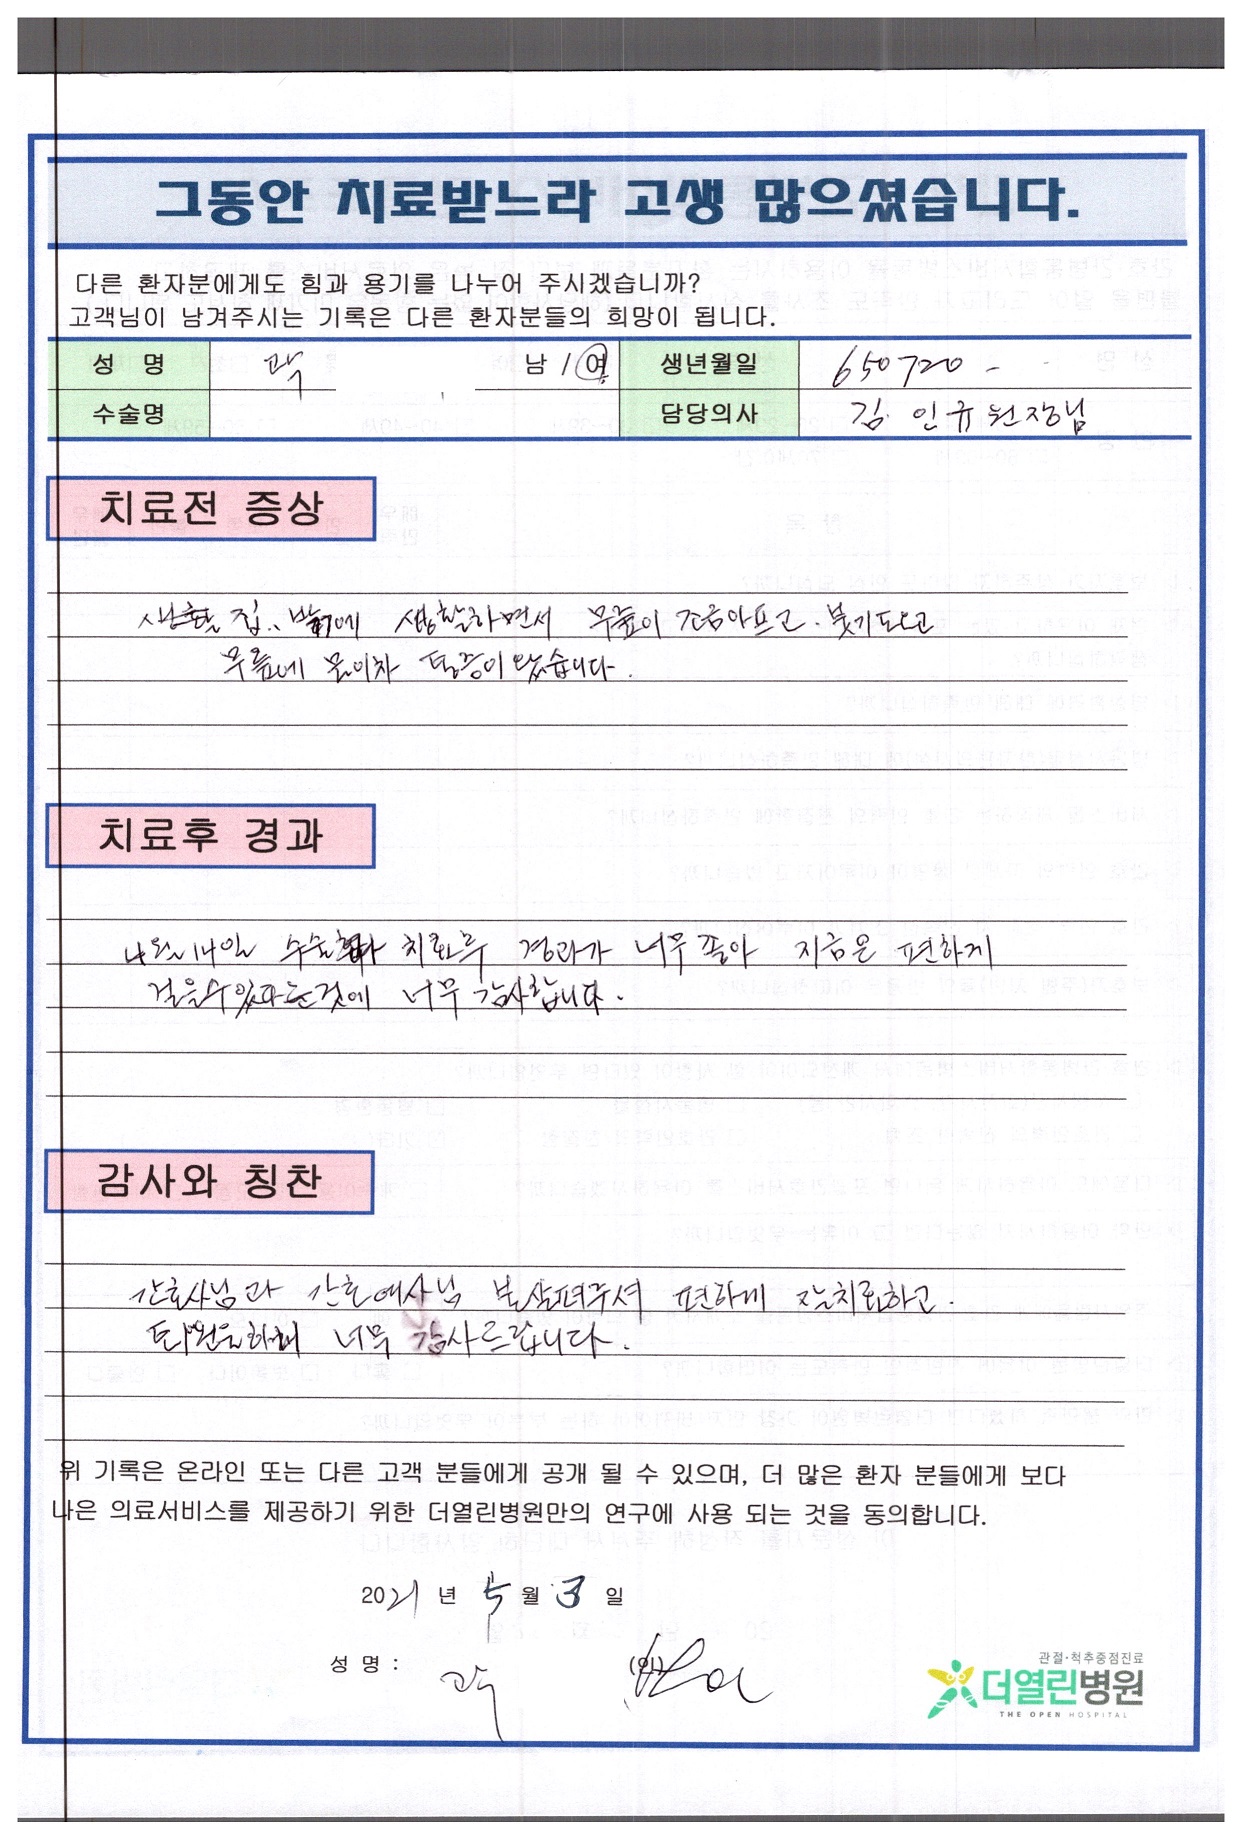 그동안 치료받느라 고생 많으셨습니다.
다른 환자분에게도 힘과 용기를 나누어 주시겠습니까?
고객님이 남겨주시는 기록은 다른 환자분들의 희망이 됩니다.
성 명 곽 남 / 여 생년월일 650720 -
수술명 담당의사 김인규 원장님
치료전 증상
집.. 밖에 생활하면서 무릎이 조금아프고. 붓기도하고
무릎에 물이차 통증이 왔습니다.
치료후 경과
4월 14일 수술 치료후 경과가 너무 좋아 지금은 편하게
걸을수있다는것에 너무 감사합니다.
감사와 칭찬
간호사님과 간호여사님 보살펴주셔 편하게 잘치료하고.
퇴원을하게 너무 감사드립니다.
위 기록은 온라인 또는 다른 고객 분들에게 공개 될 수 있으며, 더 많은 환자 분들에게 보다
나은 의료서비스를 제공하기 위한 더열린병원만의 연구에 사용 되는 것을 동의합니다.
2021 년 5 월 3 일
성 명 : 곽 (인)
관절·척추중점진료
더열린병원
THE OPEN HOSPITAL